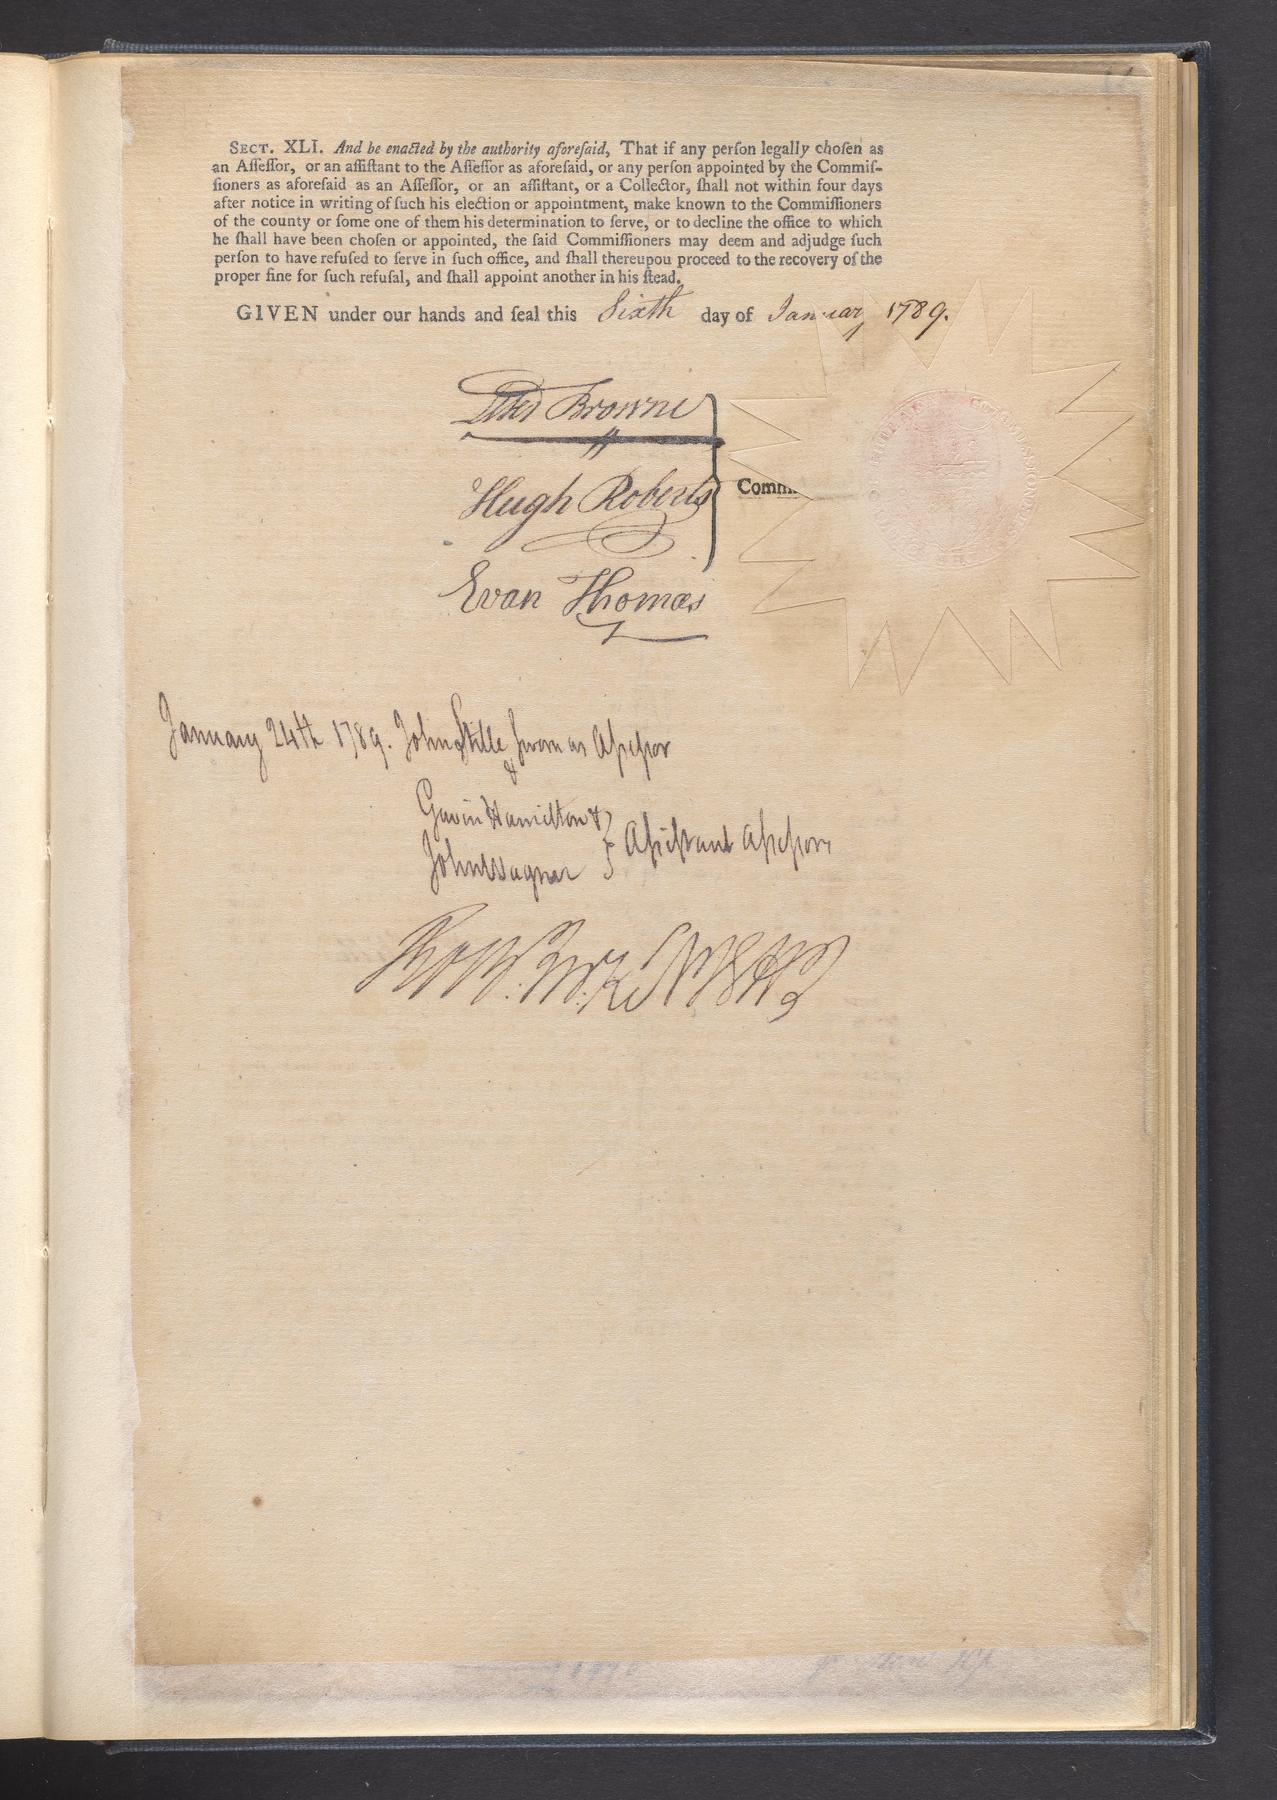 SECT. XLI. And be enacted by the authority aforeſaid, That if any perſon legally choſen as
an Aſſeſſor, or an aſſiſtant to the Aſſeſſor as aforeſaid, or any perſon appointed by the Commiſ-
ſioners as aforeſaid as an Aſſeſſor, or an aſſiſtant, or a Collector, ſhall not within four days
after notice in writing of ſuch his election or appointment, make known to the Commiſſioners
of the county or ſome one of them his determination to ſerve, or to decline the office to which
he ſhall have been choſen or appointed, the ſaid Commiſſioners may deem and adjudge ſuch
perſon to have refuſed to ſerve in ſuch office, and ſhall thereupou proceed to the recovery of the
proper fine for ſuch refuſal, and ſhall appoint another in his ſtead.
GIVEN under our hands and ſeal this Sixth day of January 1789.
Browne
Hugh Roberts
Comm
Evan Thomas
January 24th 1789. John Stille & ſworn as Aſseſsor
Gavin Hamilton &
John Wagner } Aſsiſtant Aſseſsors